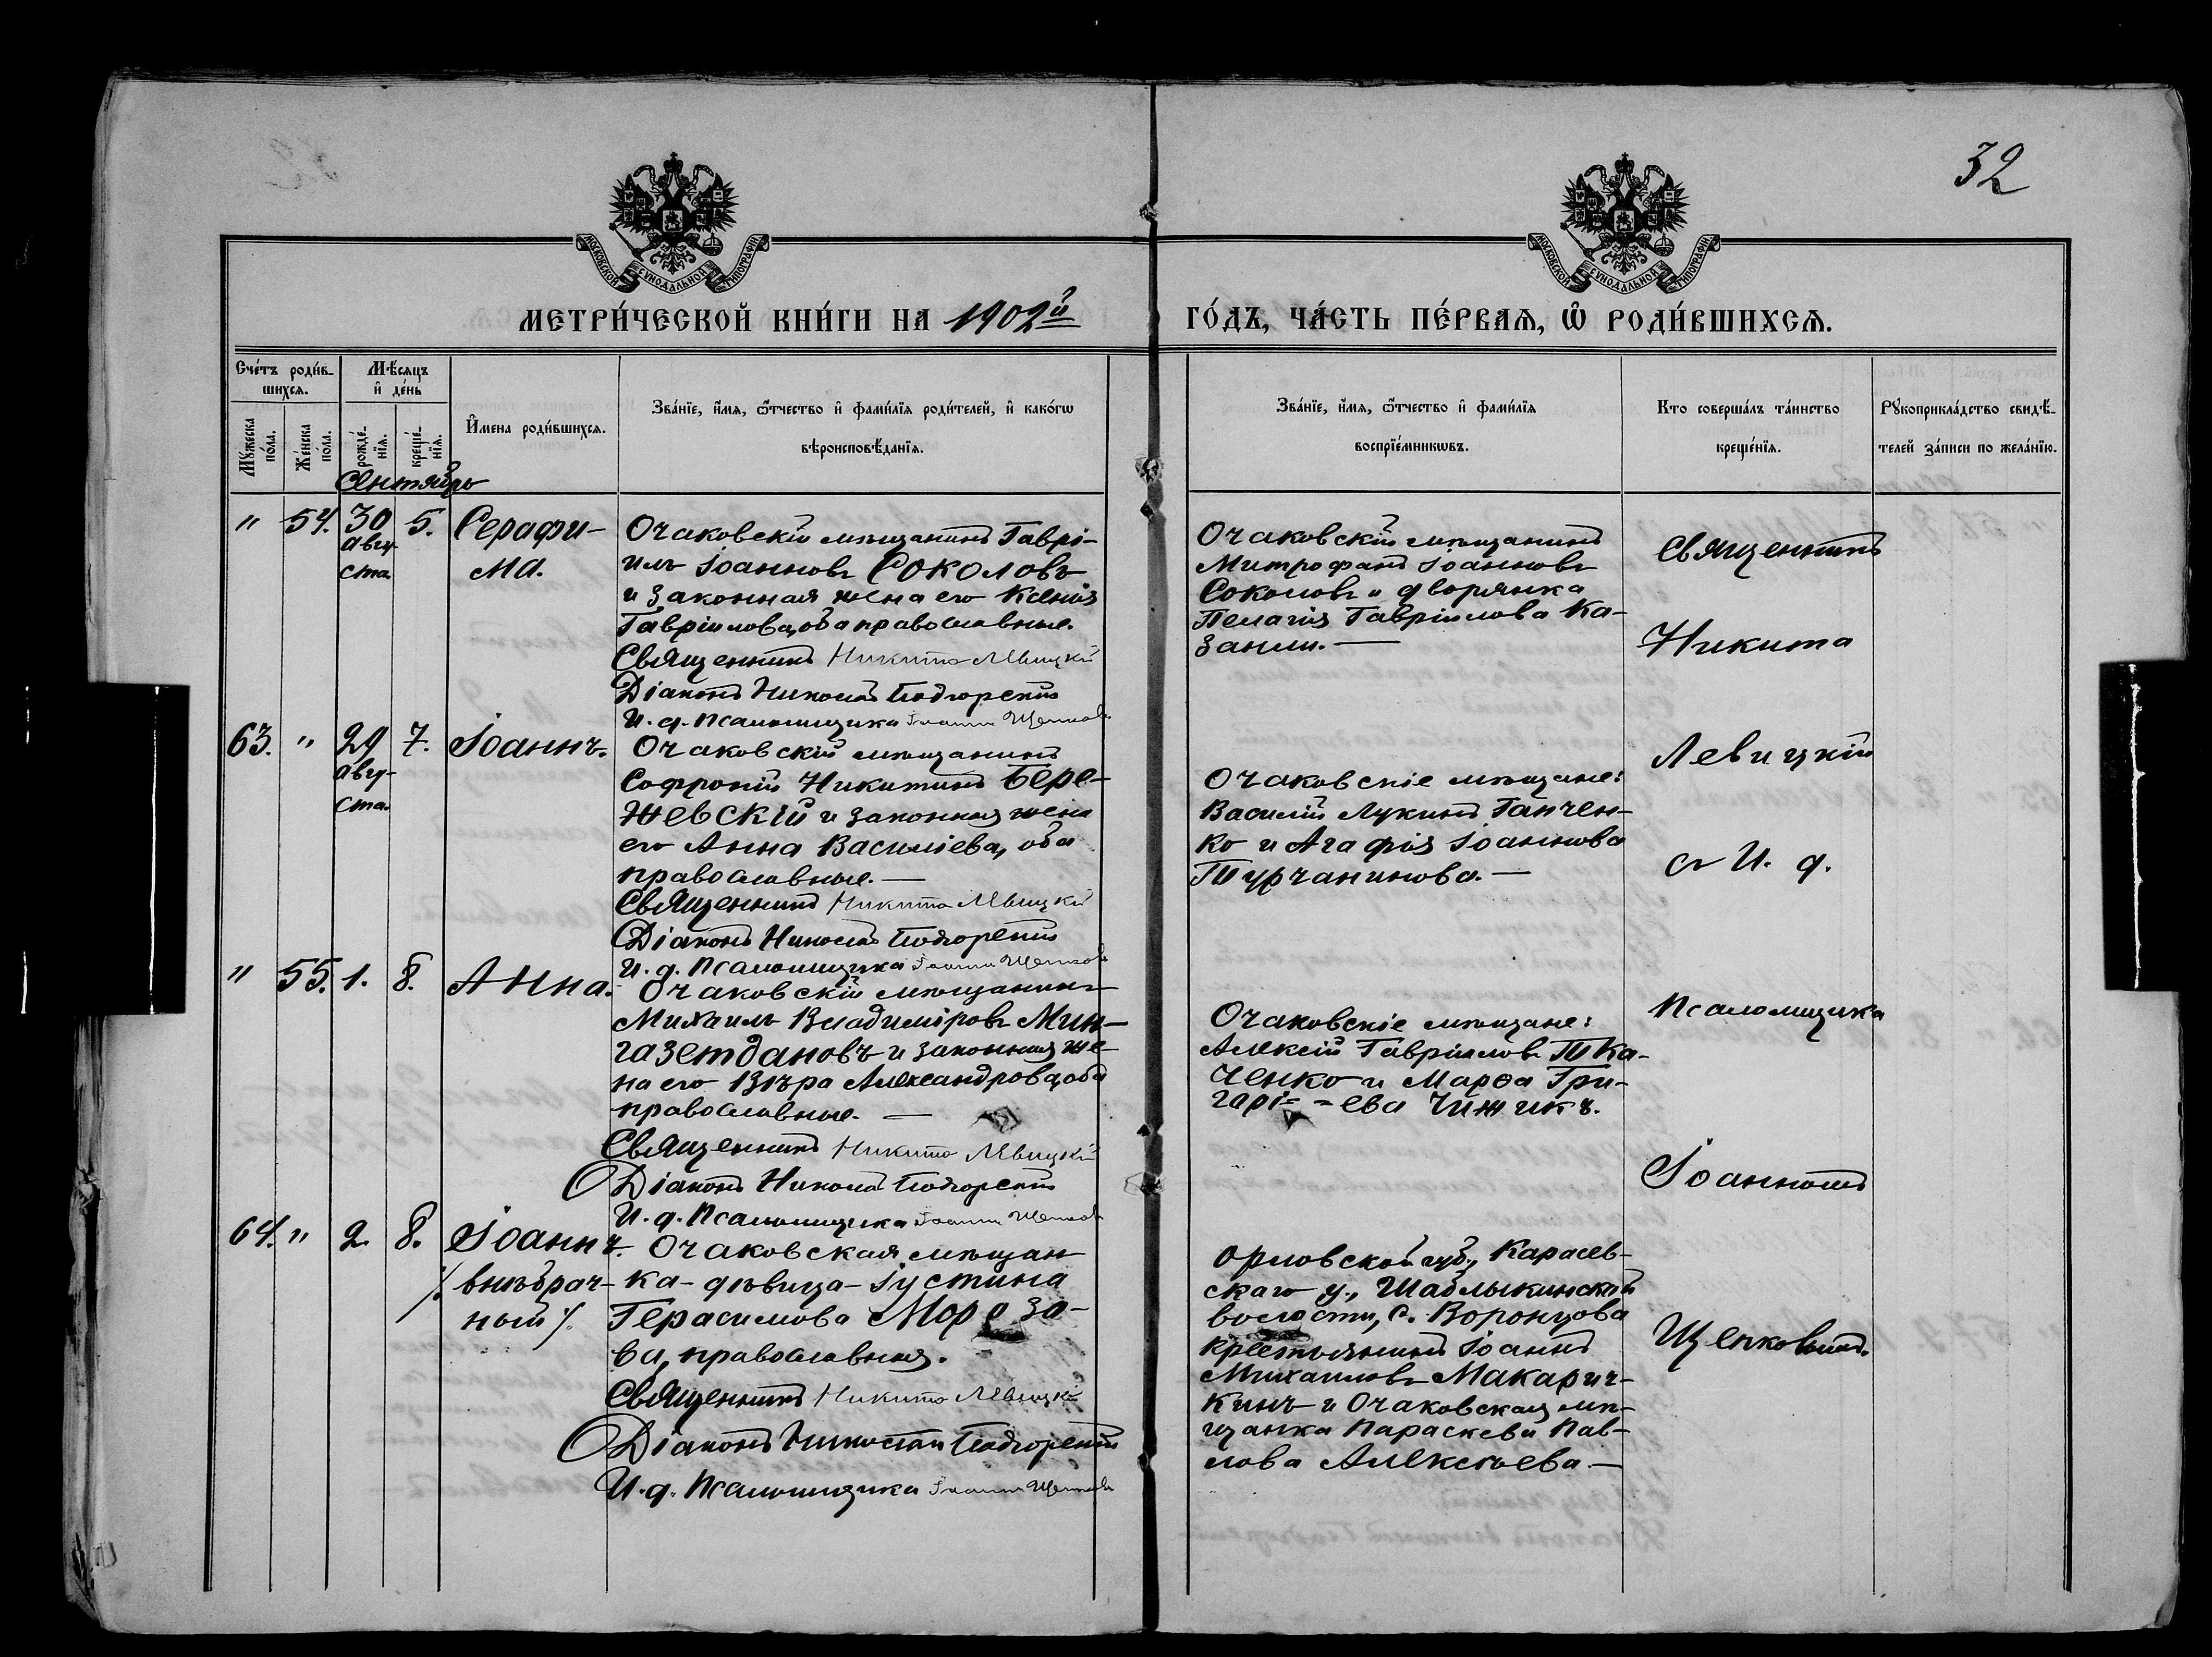 32
МОСКОВСКОЙ СУНОДАЛЬНОЙ ТИПОГРАФІИ
МОСКОВСКОЙ СУНОДАЛЬНОЙ ТИПОГРАФІИ
МЕТРИ́ЧЕСКОЙ КНИ́ГИ НА 1902й
ГО́ДЪ, ЧА́СТЬ ПЕ́РВАѦ, Ѽ РОДИ́ВШИХСѦ.
Сче́тъ роди́в-
шихсѧ.
Му́жеска по́ла.
Же́нска по́ла.
Мѣ́сѧцъ
и҆ де́нь
рожде́-
нїѧ.
креще́-
нїѧ.
И҆мена роди́вшихсѧ.
Зва́нїе, и҆́мѧ, ѻ҆́тчество и҆ фами́лїѧ роди́телей, и҆ како́гѡ
вѣроисповѣ́данїѧ.
Зва́нїе, и҆́мѧ, ѻ҆́тчество и҆ фами́лїѧ
воспрїе́мникѡвъ.
Кто соверша́лъ та́инство
креще́нїѧ.
Рꙋкоприкла́дство свидѣ́-
телей за́писи по жела́нїю.
Сентябрь
" 54. 30 авгу-
ста 5. Серафи-
ма.
Очаковскій мѣщанинъ Гаврі-
илъ Іоанновъ Соколовъ
и законная жена его Ксенія
Гавріилова, оба православные.
Священникъ Никита Левицкій
Діаконъ Николай Подгорскій
И. д. Псаломщика Іоаннъ Щепковъ
Очаковскій мѣщанинъ
Митрофанъ Іоанновъ
Соколовъ и дворянка
Пелагія Гавріилова Ка-
занли. —
63. " 29 авгу-
ста. 7. Іоаннъ.
Очаковскій мѣщанинъ
Софроній Никитинъ Бере-
жевскій и законная жена
его Анна Василіева, оба
православные. —
Священникъ Никита Левицкій
Діаконъ Николай Подгорскій
И. д. Псаломщика Іоаннъ Щепковъ
Очаковскіе мѣщане:
Василій Лукинъ Ганчен-
ко и Агафія Іоаннова
Турчанинова. —
" 55. 1. 8. Анна.
Очаковскій мѣщанинъ
Михаилъ Владиміровъ Мин-
газетдановъ и законная же-
на его Вѣра Александрова, оба
православные. —
Священникъ Никита Левицкій
Діаконъ Николай Подгорскій
И. д. Псаломщика Іоаннъ Щепковъ
Очаковскіе мѣщане:
Алексій Гавріиловъ Тка-
ченко и Марѳа Гри-
горі= =ева Чижикъ.
64. " 2. 8. Іоаннъ.
/. внѣбрач-
ный /.
Очаковская мѣщан
ка- дѣвица- Іустина
Герасимова Мороза-
ва, православная.
Священникъ Никита Левицкій
Діаконъ Николай Подгорскій
И. д. Псаломщика Іоаннъ Щепковъ
Орловской губ., Карасев-
скаго у., Шаблыкинской
волости, с. Воронцова
крестьянинъ Іоаннъ
Михаиловъ Макарич-
кинъ и Очаковская мѣ-
щанка Параскева Пав-
лова Алексѣева. —
Священникъ
Никита
Левицкій
съ И. д.
Псаломщика
Іоанномъ
Щепковымъ.